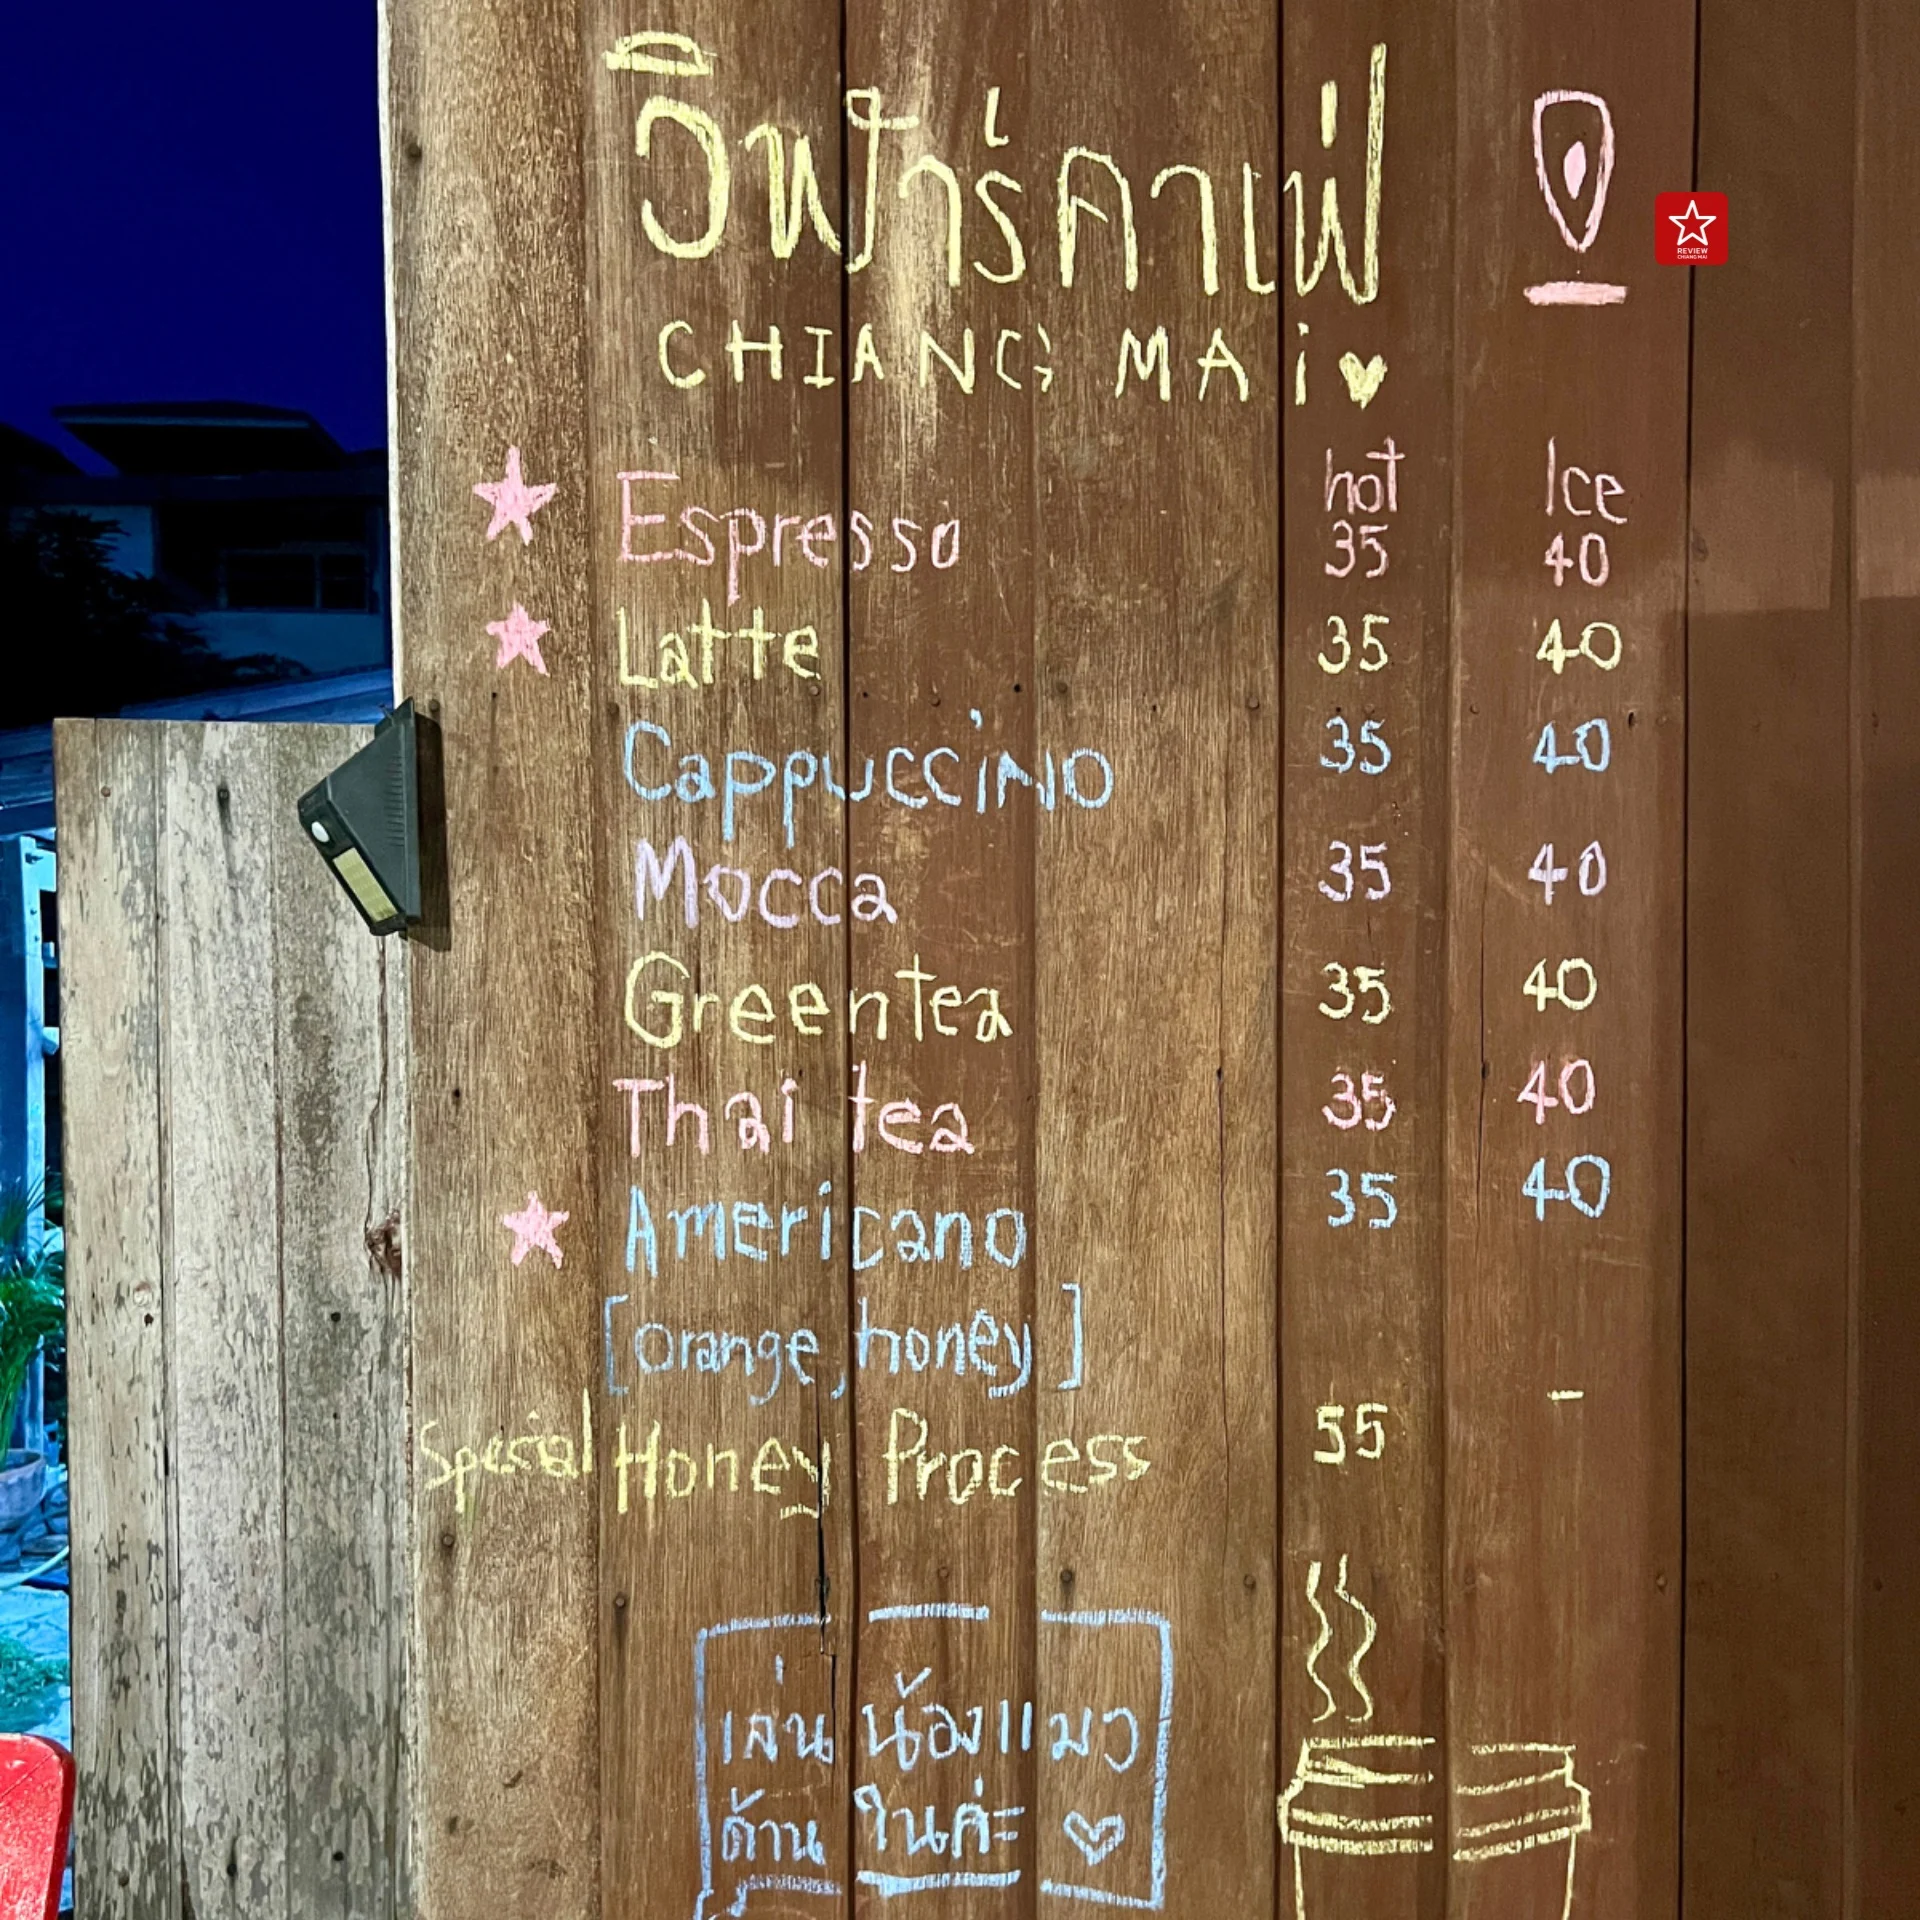 อินฟาร์คาเฟ่
CHIANG MAi
hot Ice
Espresso 35 40
Latte 35 40
Cappuccino 35 40
Mocca 35 40
Green tea 35 40
Thai tea 35 40
Americano 35 40
[orange, honey]
Special Honey Process 55 -
เล่นน้องแมว
ด้านในค่ะ
REVIEW
CHIANG MAI